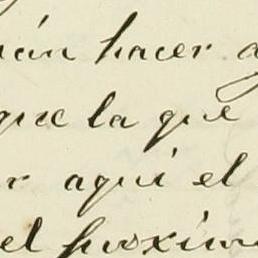 rán hacer a
que la que
r aquí el
el proxim